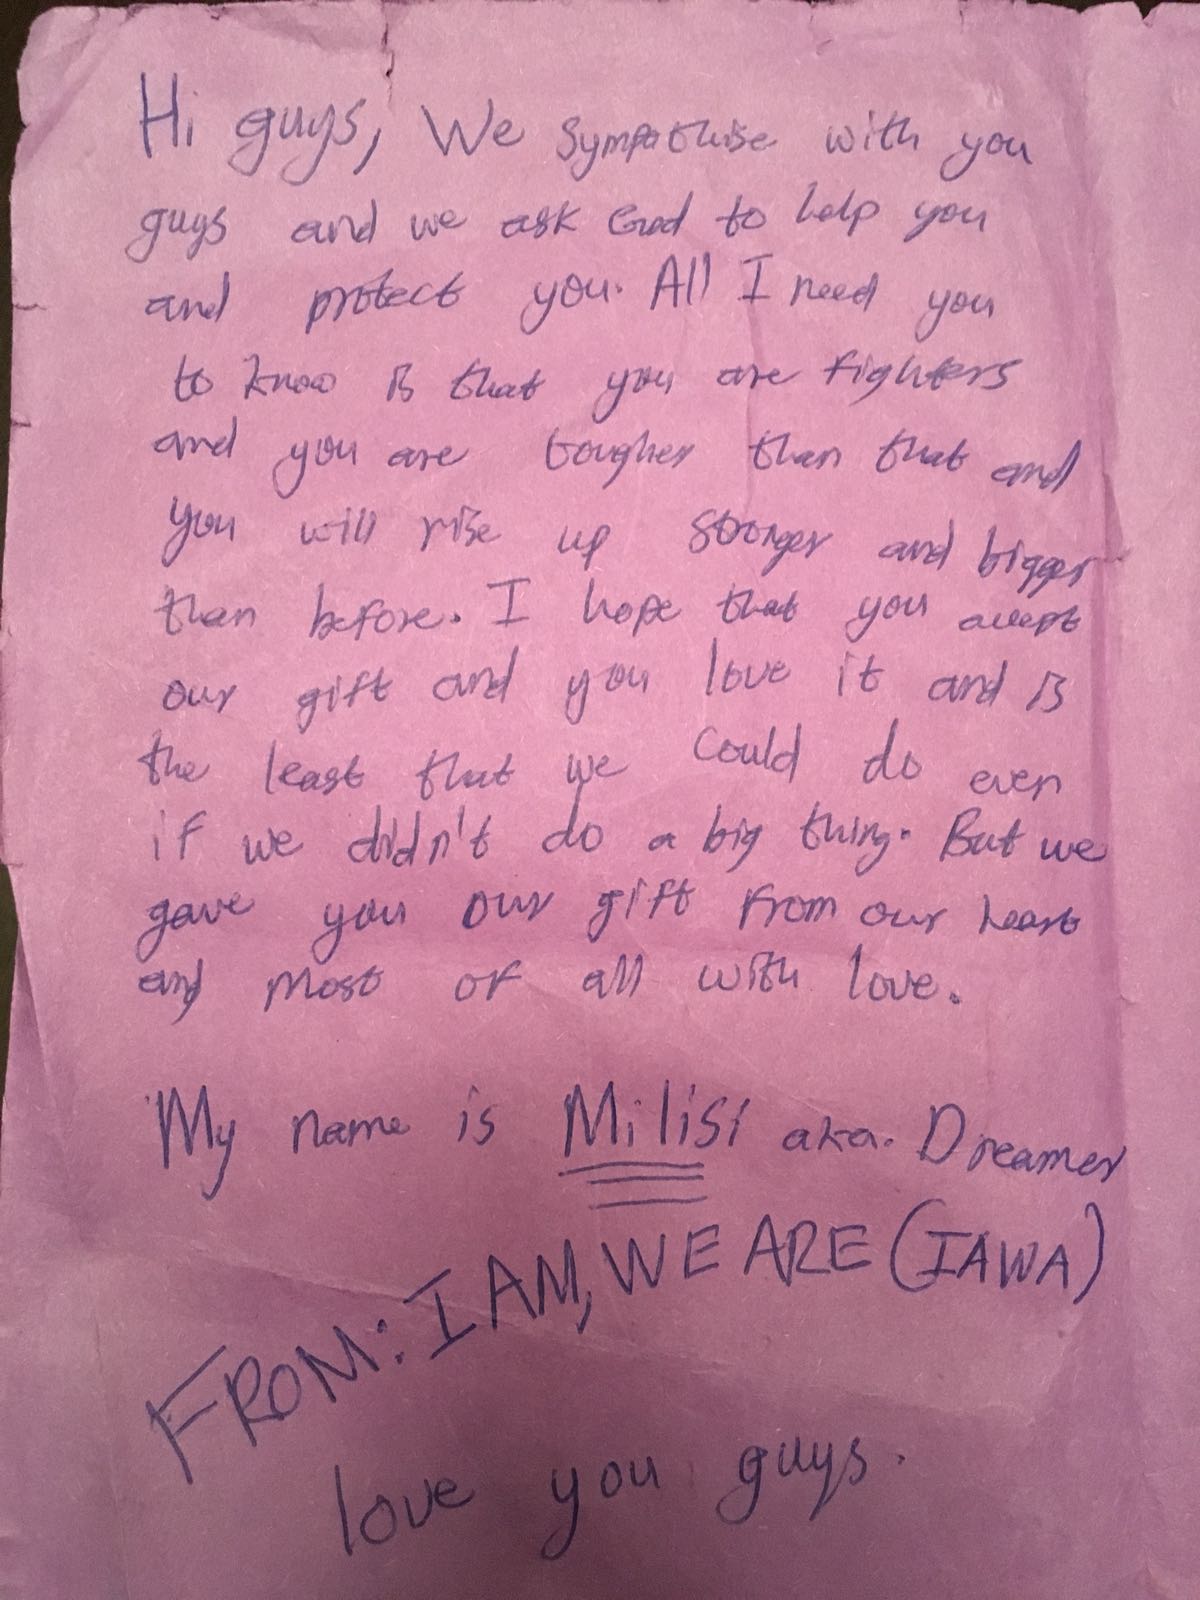 Hi guys, We sympathise with you
guys and we ask God to help you
and protect you. All I need you
to know is that you are fighters
and you are tougher than that and
you will rise up stronger and bigger
than before. I hope that you accept
our gift and you love it and is
the least that we could do even
if we didn't do a big thing. But we
gave you our gift from our heart
and most of all with love.
My name is Milisi aka. Dreamer
FROM: I AM, WE ARE (IAWA)
love you guys.